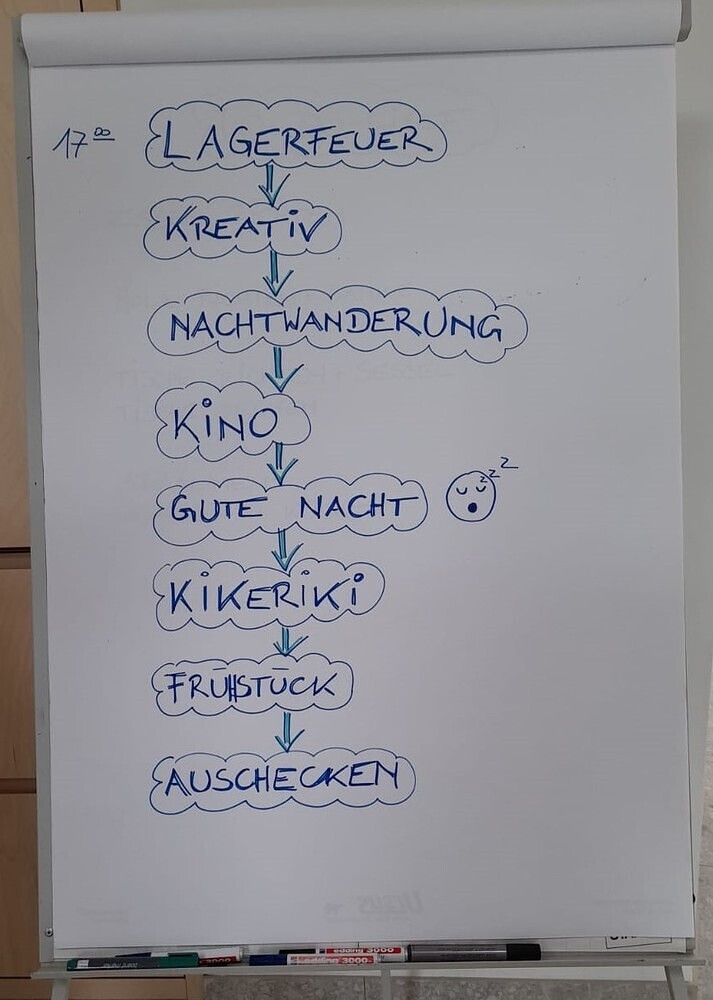 17⁰⁰ LAGERFEUER
KREATiV
NACHTWANDERUNG
KiNO
GUTE NACHT z z z
KiKERiKi
FRÜHSTÜCK
AUSCHECKEN
edding 3000
3000
edding 3000